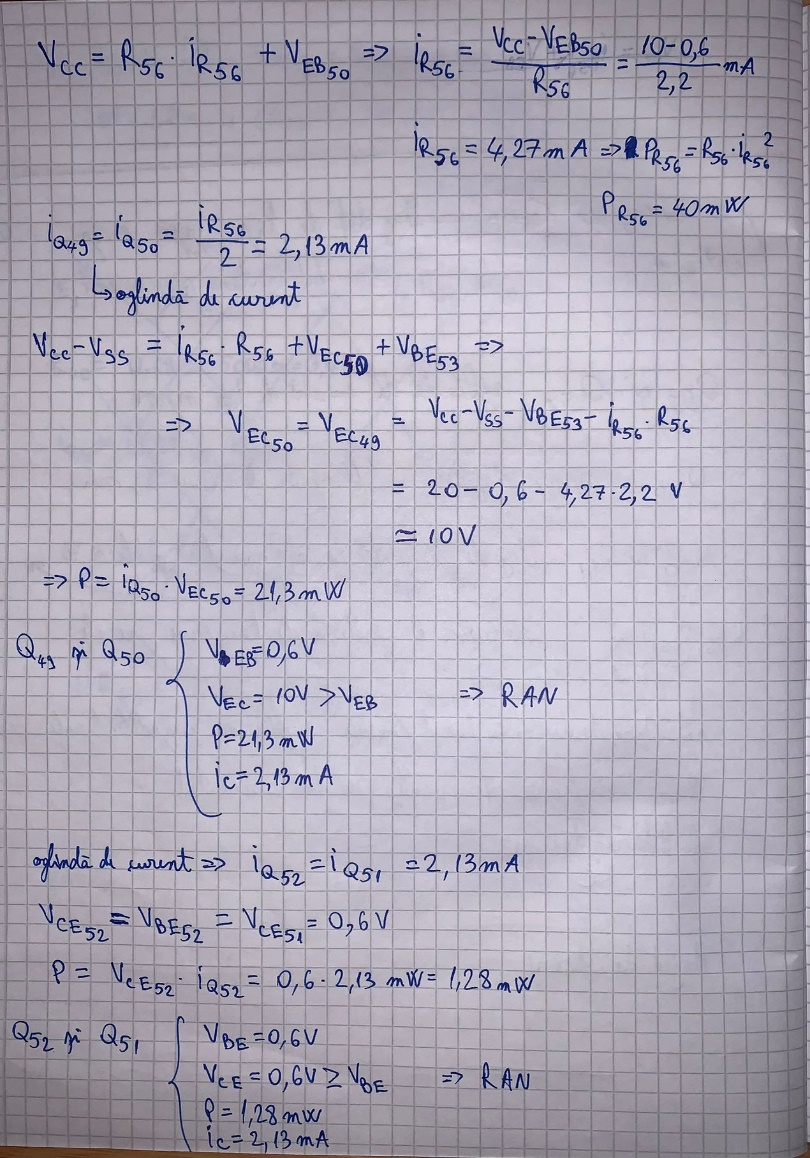 V_CC = R_56 · i_R56 + V_EB50 => i_R56 = (V_CC - V_EB50) / R_56 = (10 - 0,6) / 2,2 mA
i_R56 = 4,27 mA => P_R56 = R_56 · i_R56^2
P_R56 = 40 mW
i_Q49 = i_Q50 = i_R56 / 2 = 2,13 mA
↳ oglindă de curent
V_CC - V_SS = i_R56 · R_56 + V_EC50 + V_BE53 =>
=> V_EC50 = V_EC49 = V_CC - V_SS - V_BE53 - i_R56 · R_56
= 20 - 0,6 - 4,27 · 2,2 V
≃ 10V
=> P = i_Q50 · V_EC50 = 21,3 mW
Q_49 și Q_50 { V_EB = 0,6V
V_EC = 10V > V_EB => RAN
P = 21,3 mW
i_C = 2,13 mA
oglindă de curent => i_Q52 = i_Q51 = 2,13 mA
V_CE52 = V_BE52 = V_CE51 = 0,6 V
P = V_CE52 · i_Q52 = 0,6 · 2,13 mW = 1,28 mW
Q_52 și Q_51 { V_BE = 0,6V
V_CE = 0,6V ≥ V_BE => RAN
P = 1,28 mW
i_C = 2,13 mA